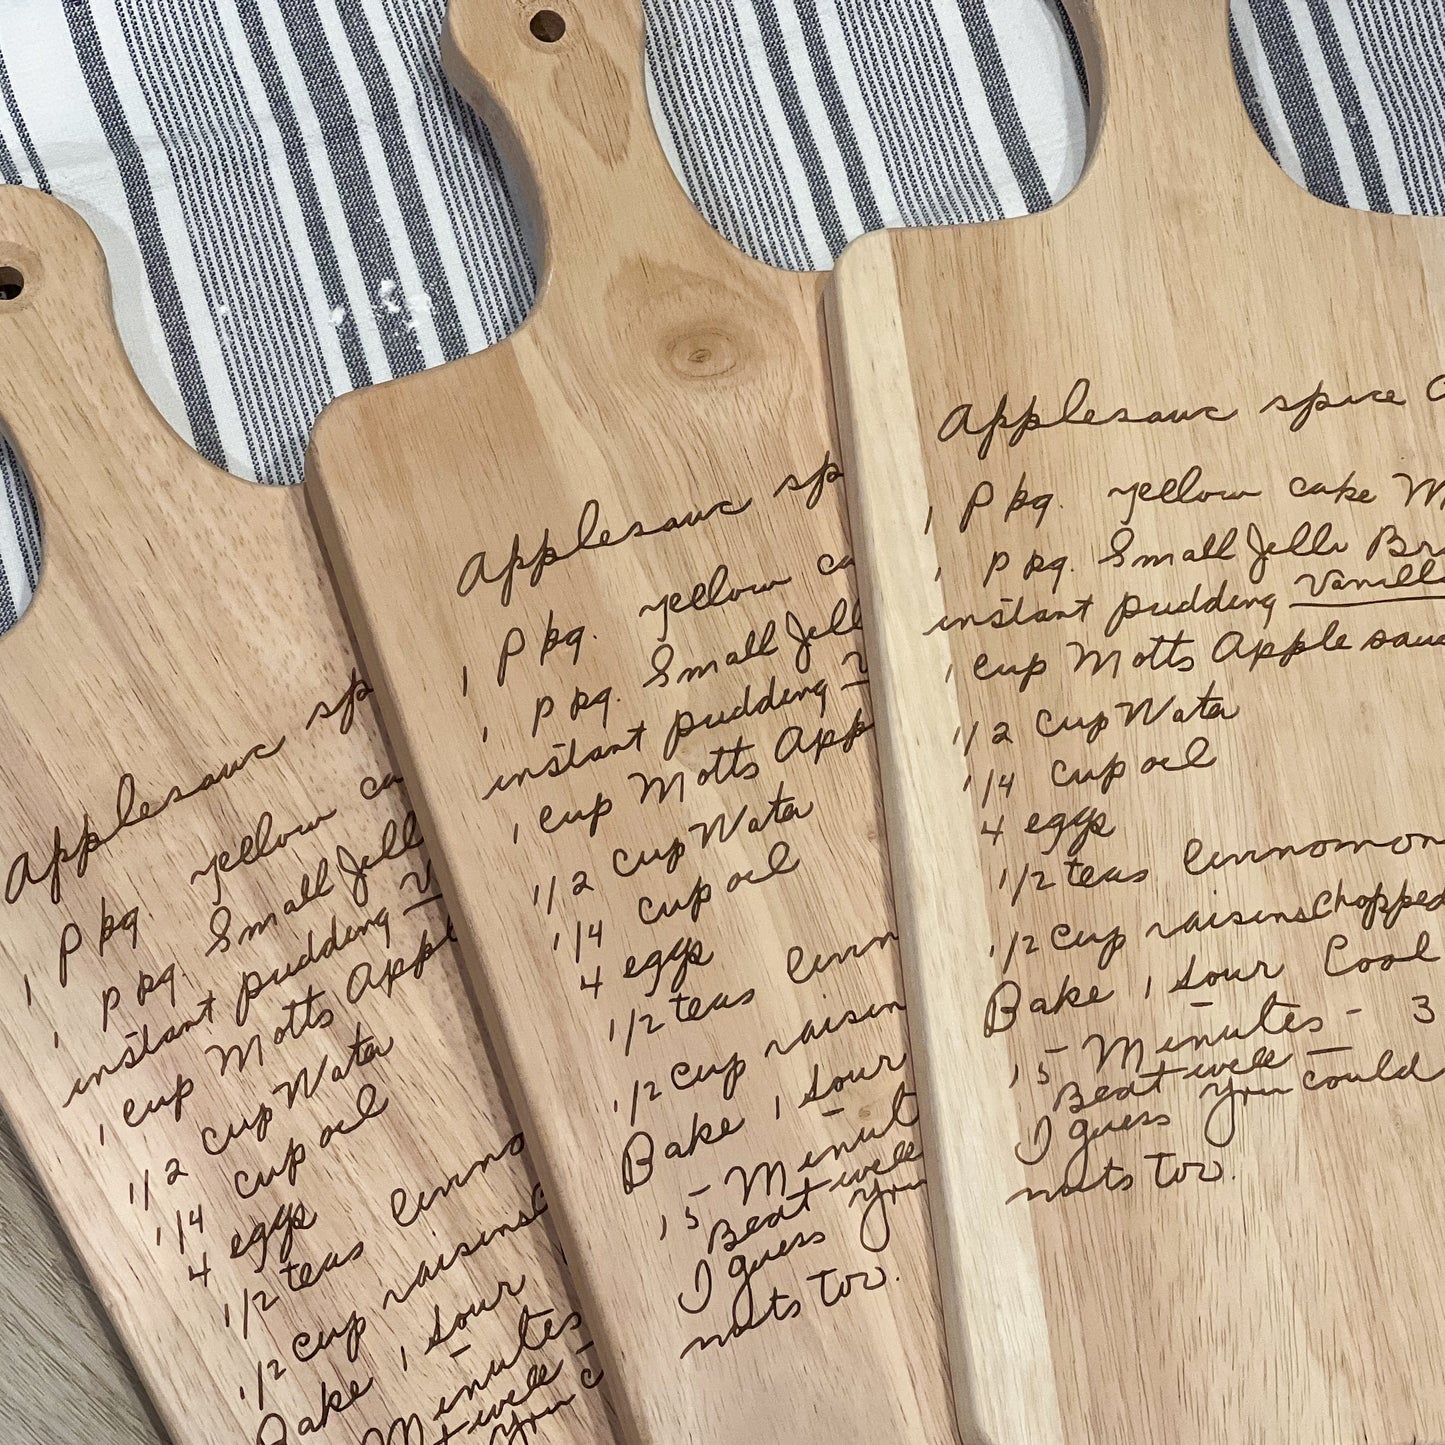 Applesauce sp
Ppkg. yellow ca
1 Ppkg. Small Jell
instant pudding V
1 cup Motts App
1/2 cup Water
1/4 cup oil
4 eggs
1/2 teas cinna
1/2 cup raisins
Bake 1 hour
Minutes
t well -
You c
Applesauce sp
1 Ppkg. yellow ca
1 Ppkg. Small Jell
instant pudding V
1 cup Motts App
1/2 cup Water
1/4 cup oil
4 eggs
1/2 teas cinn
1/2 cup raisin
Bake 1 hour
15 - Minut
Beat well
I guess you
nuts too.
Applesauce spice
1 Ppkg. yellow cake M
1 Ppkg. Small Jello Br
instant pudding Vanilla
1 cup Motts Apple sauc
1/2 cup Water
1/4 cup oil
4 eggs
1/2 teas cinnomon
1/2 cup raisins Chopped
Bake 1 hour Cool
15 - Minutes - 3
Beat well -
I guess you could
nuts too.